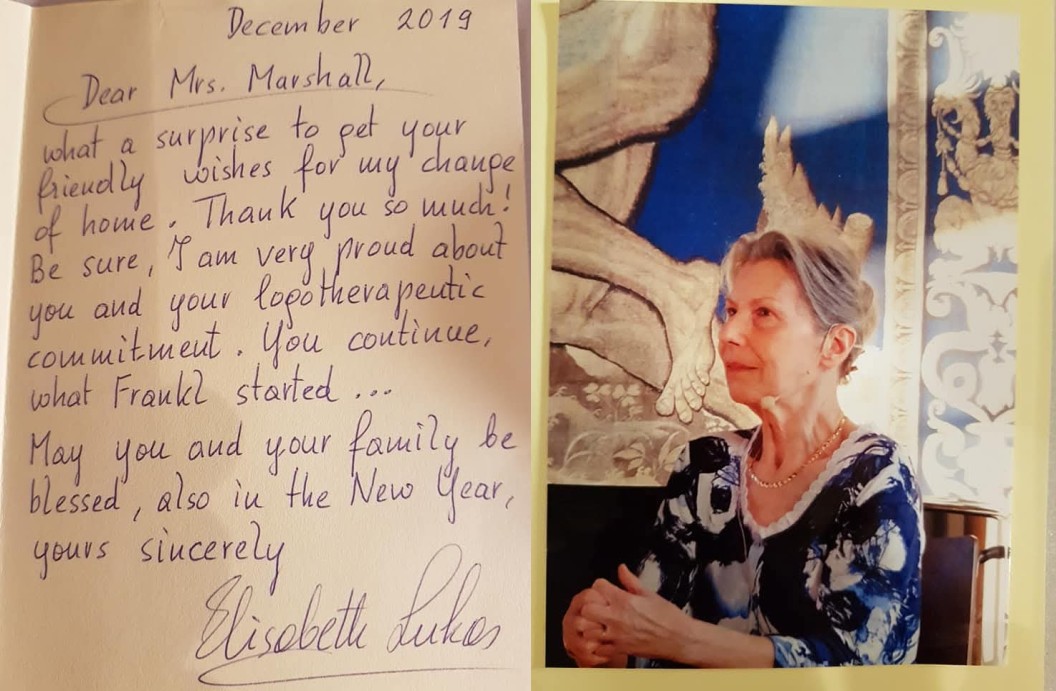 December 2019
Dear Mrs. Marshall,
what a surprise to get your
friendly wishes for my change
of home. Thank you so much!
Be sure, I am very proud about
you and your logotherapeutic
commitment. You continue,
what Frankl started ...
May you and your family be
blessed, also in the New Year,
yours sincerely
Elisabeth Lukas